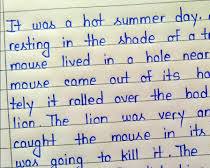 It was a hot summer day.
resting in the shade of a
mouse lived in a hole near
mouse came out of its
tely it rolled over the
lion. The lion was very
caught the mouse in its
was going to kill it. The